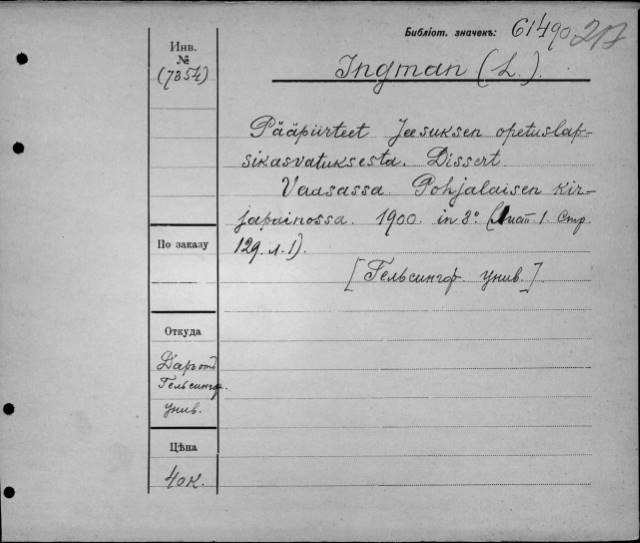 Библіот. значекъ: 61490 217
Инв.
№
(7354)
Ingman (L.).
Pääpiirteet Jeesuksen opetuslap-
sikasvatuksesta. Dissert.
Vaasassa. Pohjalaisen kir-
japainossa. 1900. in 8° (Лист 1. Стр.
129. л. 1).
[Гельсингф. унив.]
По заказу
Откуда
Даръ от
Гельсингф.
унив.
Цѣна
40к.